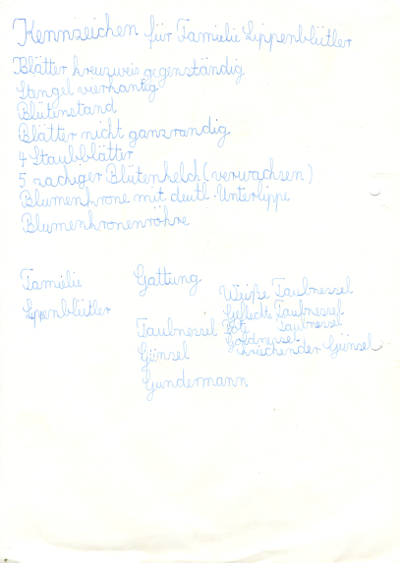 Kennzeichen für Famielie Lippenblütler
Blätter kreuzweis gegenständig
Stangel vierkantig
Blütenstand
Blätter nicht ganzrandig
4 Staubblätter
5 zackiger Blütenkelch (verwachsen)
Blumenkrone mit deutl. Unterlippe
Blumenkronenröhre
Famielie
Lippenblütler
Gattung
Taubnessel
Günsel
Gundermann
Weiße Taubnessel
Gefleckte Taubnessel
Rote Taubnessel
Goldnessel
kriechender Günsel